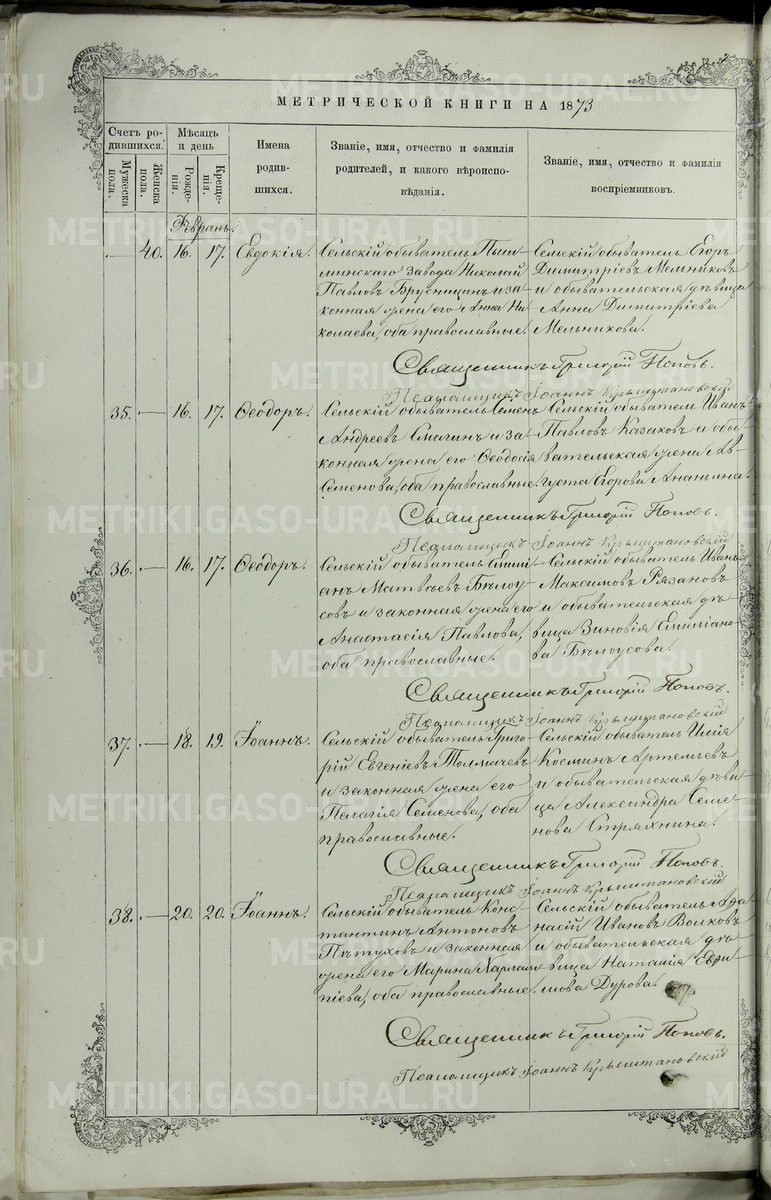 МЕТРИЧЕСКОЙ КНИГИ НА 1873
Счетъ родившихся.
Мѣсяцъ и день
Имена родившихся.
Званіе, имя, отчество и фамилія родителей, и какого вѣроисповѣданія.
Званіе, имя, отчество и фамилія воспріемниковъ.
Мужеска пола.
Женска пола.
Рожденія.
Крещенія.
Февраль.
40. 16. 17. Евдокія.
Сельскій обыватель Пыш-
минскаго Завода Николай
Павловъ Брусницинъ и за-
конная жена его Анна Ни-
колаева, оба православные.
Сельскій обыватель Егоръ
Димитріевъ Мельниковъ
и обывательская дѣвица
Анна Димитріева
Мельникова.
Священникъ Григорій Поповъ.
Псаломщикъ Іоаннъ Крыштановскій
35. 16. 17. Ѳеодоръ.
Сельскій обыватель Семенъ
Андреевъ Смагинъ и за-
конная жена его Ѳеодосія
Семенова, оба православные.
Сельскій обыватель Иванъ
Павловъ Казаковъ и обы-
вательская жена Ав-
густа Егорова Ананьина.
Священникъ Григорій Поповъ.
Псаломщикъ Іоаннъ Крыштановскій
36. 16. 17. Ѳеодоръ.
Сельскій обыватель Емилі-
анъ Матвѣевъ Бѣлоу-
совъ и законная жена его
Анастасія Павлова,
оба православные.
Сельскій обыватель Иванъ
Максимовъ Рязановъ
и обывательская дѣ-
вица Зиновія Емиліано-
ва Бѣлоусова.
Священникъ Григорій Поповъ.
Псаломщикъ Іоаннъ Крыштановскій
37. 18. 19. Іоаннъ.
Сельскій обыватель Григо-
рій Евгеніевъ Толмачевъ
и законная жена его
Пелагія Семенова, оба
православные.
Сельскій обыватель Илія
Косминъ Артельевъ
и обывательская дѣви-
ца Александра Семе-
нова Стряхнина.
Священникъ Григорій Поповъ.
Псаломщикъ Іоаннъ Крыштановскій
38. 20. 20. Іоаннъ.
Сельскій обыватель Конс-
тантинъ Антоновъ
Пѣтуховъ и законная
жена его Марина Харлам-
піева, оба православные.
Сельскій обыватель Афа-
насій Ивановъ Волковъ
и обывательская дѣ-
вица Наталія
Дурова.
Священникъ Григорій Поповъ.
Псаломщикъ Іоаннъ Крыштановскій
METRIKI.GASO-URAL.RU